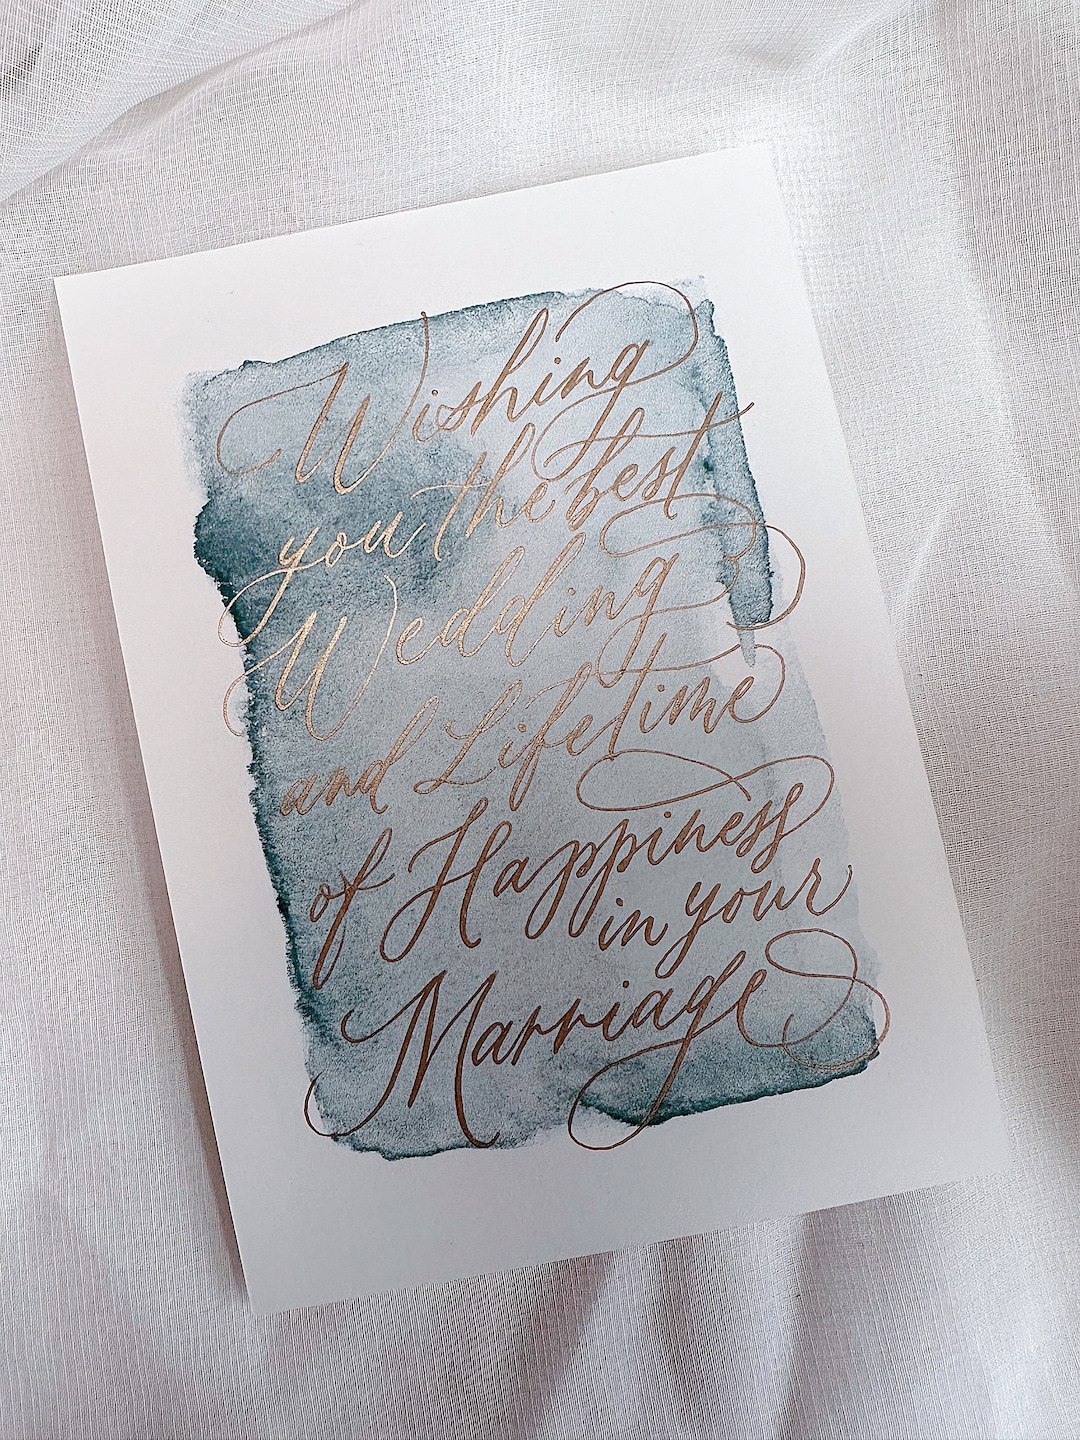 Wishing
you the best
Wedding
and Lifetime
of Happiness
in your
Marriage